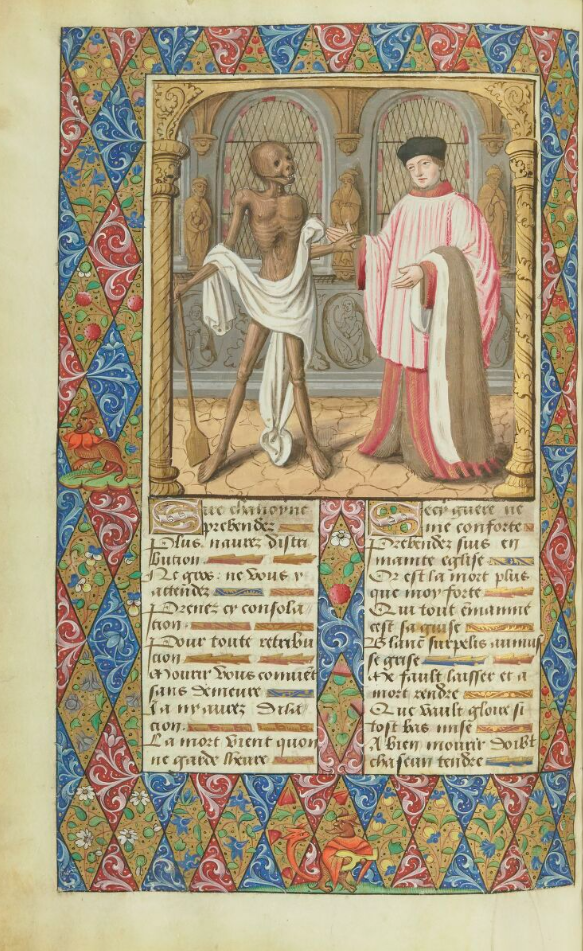 Sire chanoyne
prebendez
Plus naurez distri
bucion
Ne gros: ne vous y
attendez
Prenez cy consola
tion
Pour toute retribu
cion
Mourir vous convient
sans demeure
Ja ny aurez dila
cion
La mort vient quon
ne garde lheure
Cecy guere ne
me conforte
Prebendez suis en
mainte eglise
Or est la mort plus
que moy forte
Qui tout emmaine
cest sa guise
Blanc surpelis aumus
se grise
Me fault laisser et a
mort rendre
Que vault gloire si
tost bas mise
A bien mourir doibt
chascun tendre